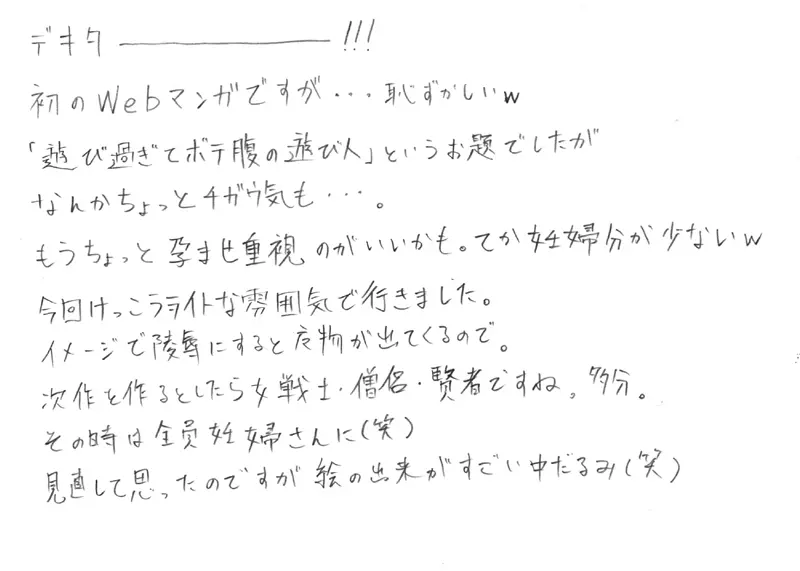 デキタ――――――!!!
初のWebマンガですが・・・恥ずかしいw
「遊び過ぎてボテ腹の遊び人」というお題でしたが
なんかちょっとチガウ気も・・・。
もうちょっと孕ませ重視のがいいかも。てか妊婦分が少ないw
今回けっこうライトな雰囲気で行きました。
イメージで陵辱にすると灰物が出てくるので。
次作を作るとしたら女戦士・僧侶・賢者ですね。多分。
その時は全員妊婦さんに(笑)
見直して思ったのですが絵の出来がすごい中だるみ(笑)